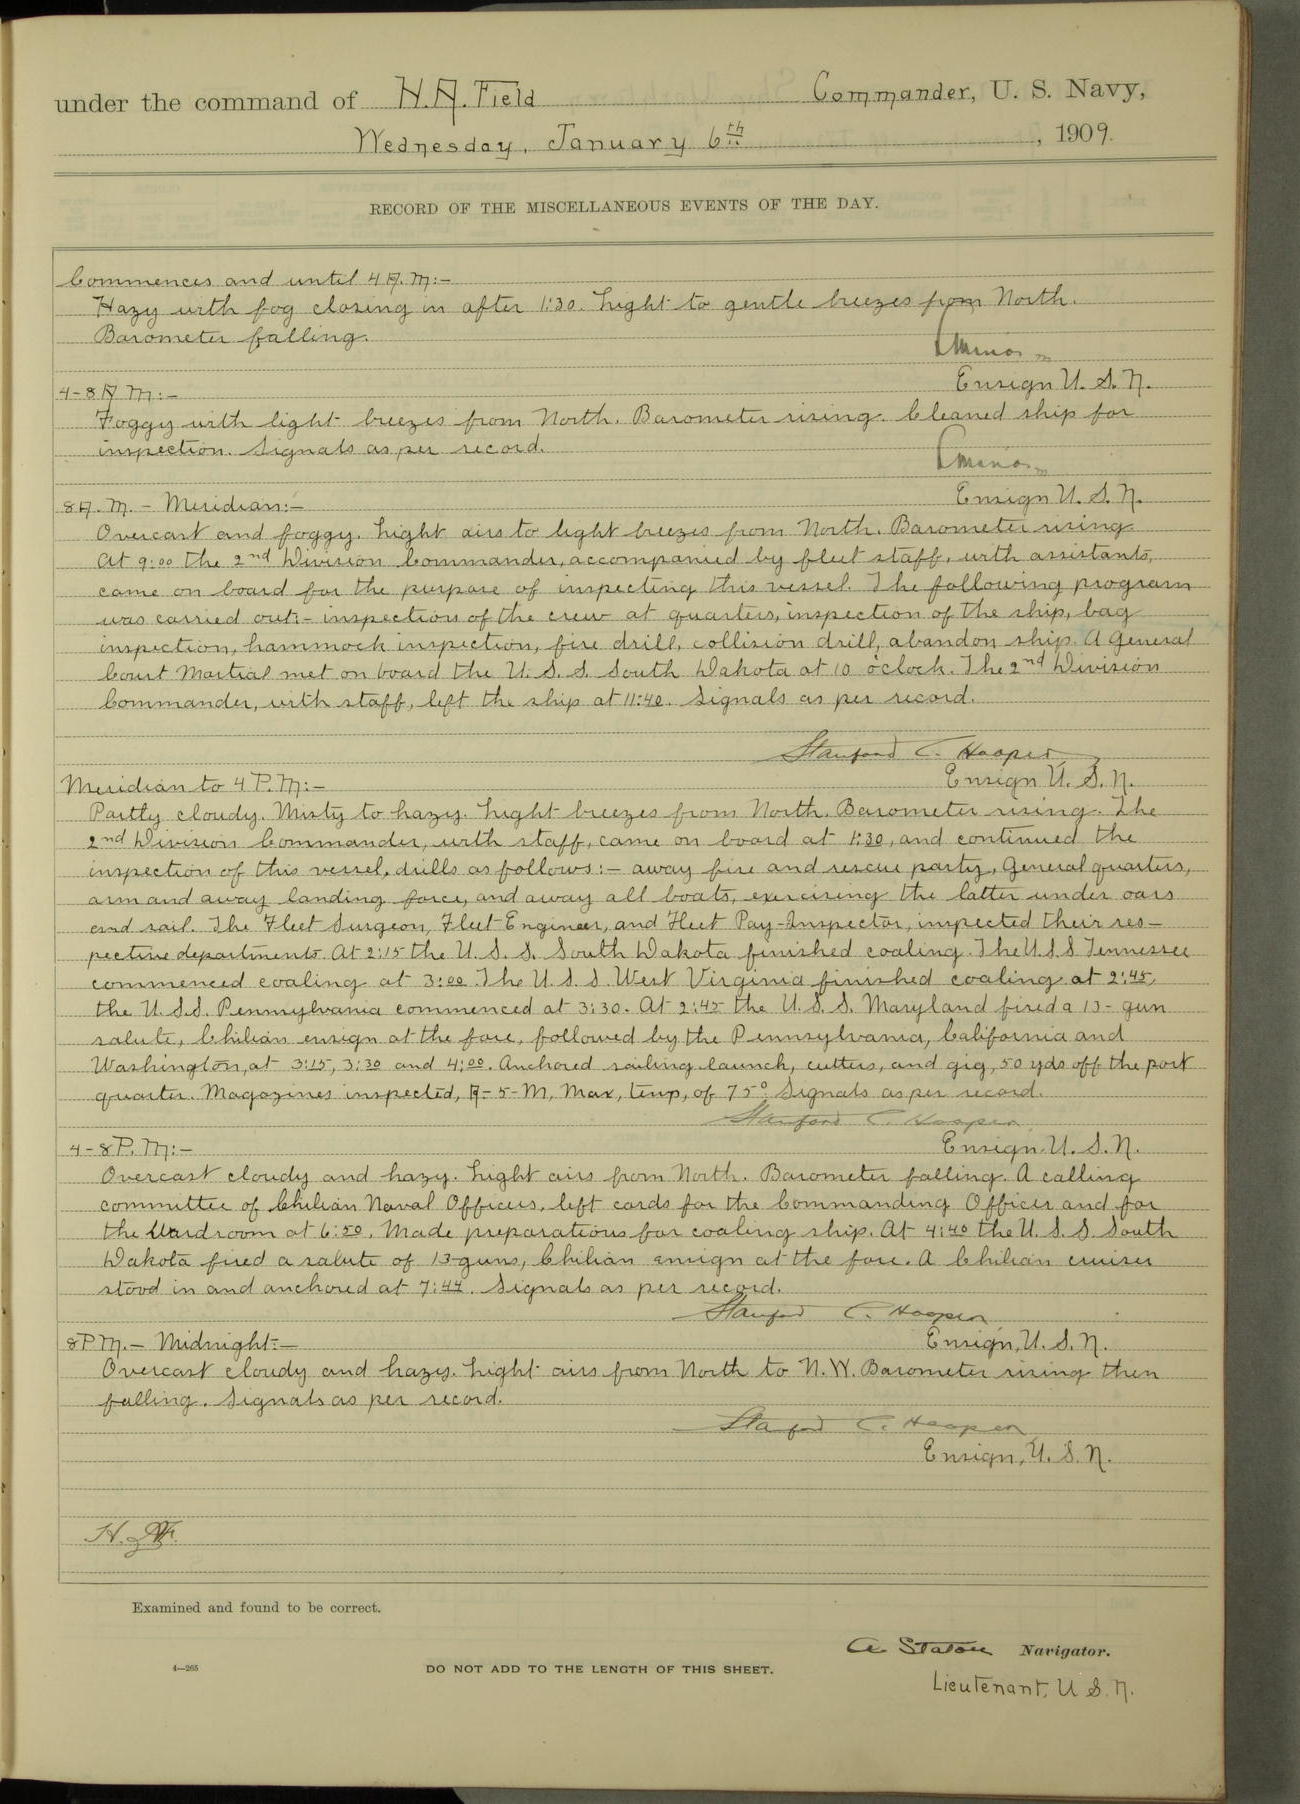 under the command of H. A. Field Commander, U. S. Navy,
Wednesday, January 6th, 1909.
RECORD OF THE MISCELLANEOUS EVENTS OF THE DAY.
Commences and until 4 A. M:-
Hazy with fog closing in after 1:30. Light to gentle breezes from North.
Barometer falling.
Ensign U. S. N.
4-8 A M:-
Foggy with light breezes from North. Barometer rising. Cleaned ship for
inspection. Signals as per record.
Ensign U. S. N.
8 A. M. - Meridian:-
Overcast and foggy. Light airs to light breezes from North. Barometer rising
At 9:00 the 2nd Division Commander, accompanied by fleet staff, with assistants,
came on board for the purpose of inspecting this vessel. The following program
was carried out:- inspection of the crew at quarters, inspection of the ship, bag
inspection, hammock inspection, fire drill, collision drill, abandon ship. A General
Court Martial met on board the U. S. S. South Dakota at 10 o'clock. The 2nd Division
Commander, with staff, left the ship at 11:40. Signals as per record.
Stanford C. Hooper
Ensign U. S. N.
Meridian to 4 P. M:-
Partly cloudy. Misty to hazy. Light breezes from North. Barometer rising. The
2nd Division Commander, with staff, came on board at 1:30, and continued the
inspection of this vessel, drills as follows:- away fire and rescue party, General quarters,
arm and away landing force, and away all boats, exercising the latter under oars
and sail. The Fleet Surgeon, Fleet Engineer, and Fleet Pay-Inspector, inspected their res-
pective departments. At 2:15 the U. S. S. South Dakota finished coaling. The U.S.S Tennessee
commenced coaling at 3:00. The U. S. S. West Virginia finished coaling at 2:45,
the U. S.S. Pennsylvania commenced at 3:30. At 2:45 the U. S. S. Maryland fired a 13-gun
salute, Chilian ensign at the fore, followed by the Pennsylvania, California and
Washington, at 3:15, 3:30 and 4:00. Anchored sailing launch, cutters, and gig, 50 yds off the port
quarter. Magazines inspected, A-5-M, Max, temp, of 75°. Signals as per record.
Stanford C. Hooper
Ensign, U. S. N.
4-8 P. M:-
Overcast cloudy and hazy. Light airs from North. Barometer falling. A calling
committee of Chilian Naval Officers, left cards for the Commanding Officer and for
the Wardroom at 6:50. Made preparations for coaling ship. At 4:40 the U. S. S South
Dakota fired a salute of 13-guns, Chilian ensign at the fore. A Chilian cruiser
stood in and anchored at 7:44. Signals as per record.
Stanford C. Hooper
Ensign, U. S. N.
8 P M. - Midnight:-
Overcast cloudy and hazy. Light airs from North to N. W. Barometer rising then
falling. Signals as per record.
Stanford C. Hooper
Ensign, U. S. N.
H. A. F.
Examined and found to be correct.
A Staton Navigator.
4-265
DO NOT ADD TO THE LENGTH OF THIS SHEET.
Lieutenant, U S. N.